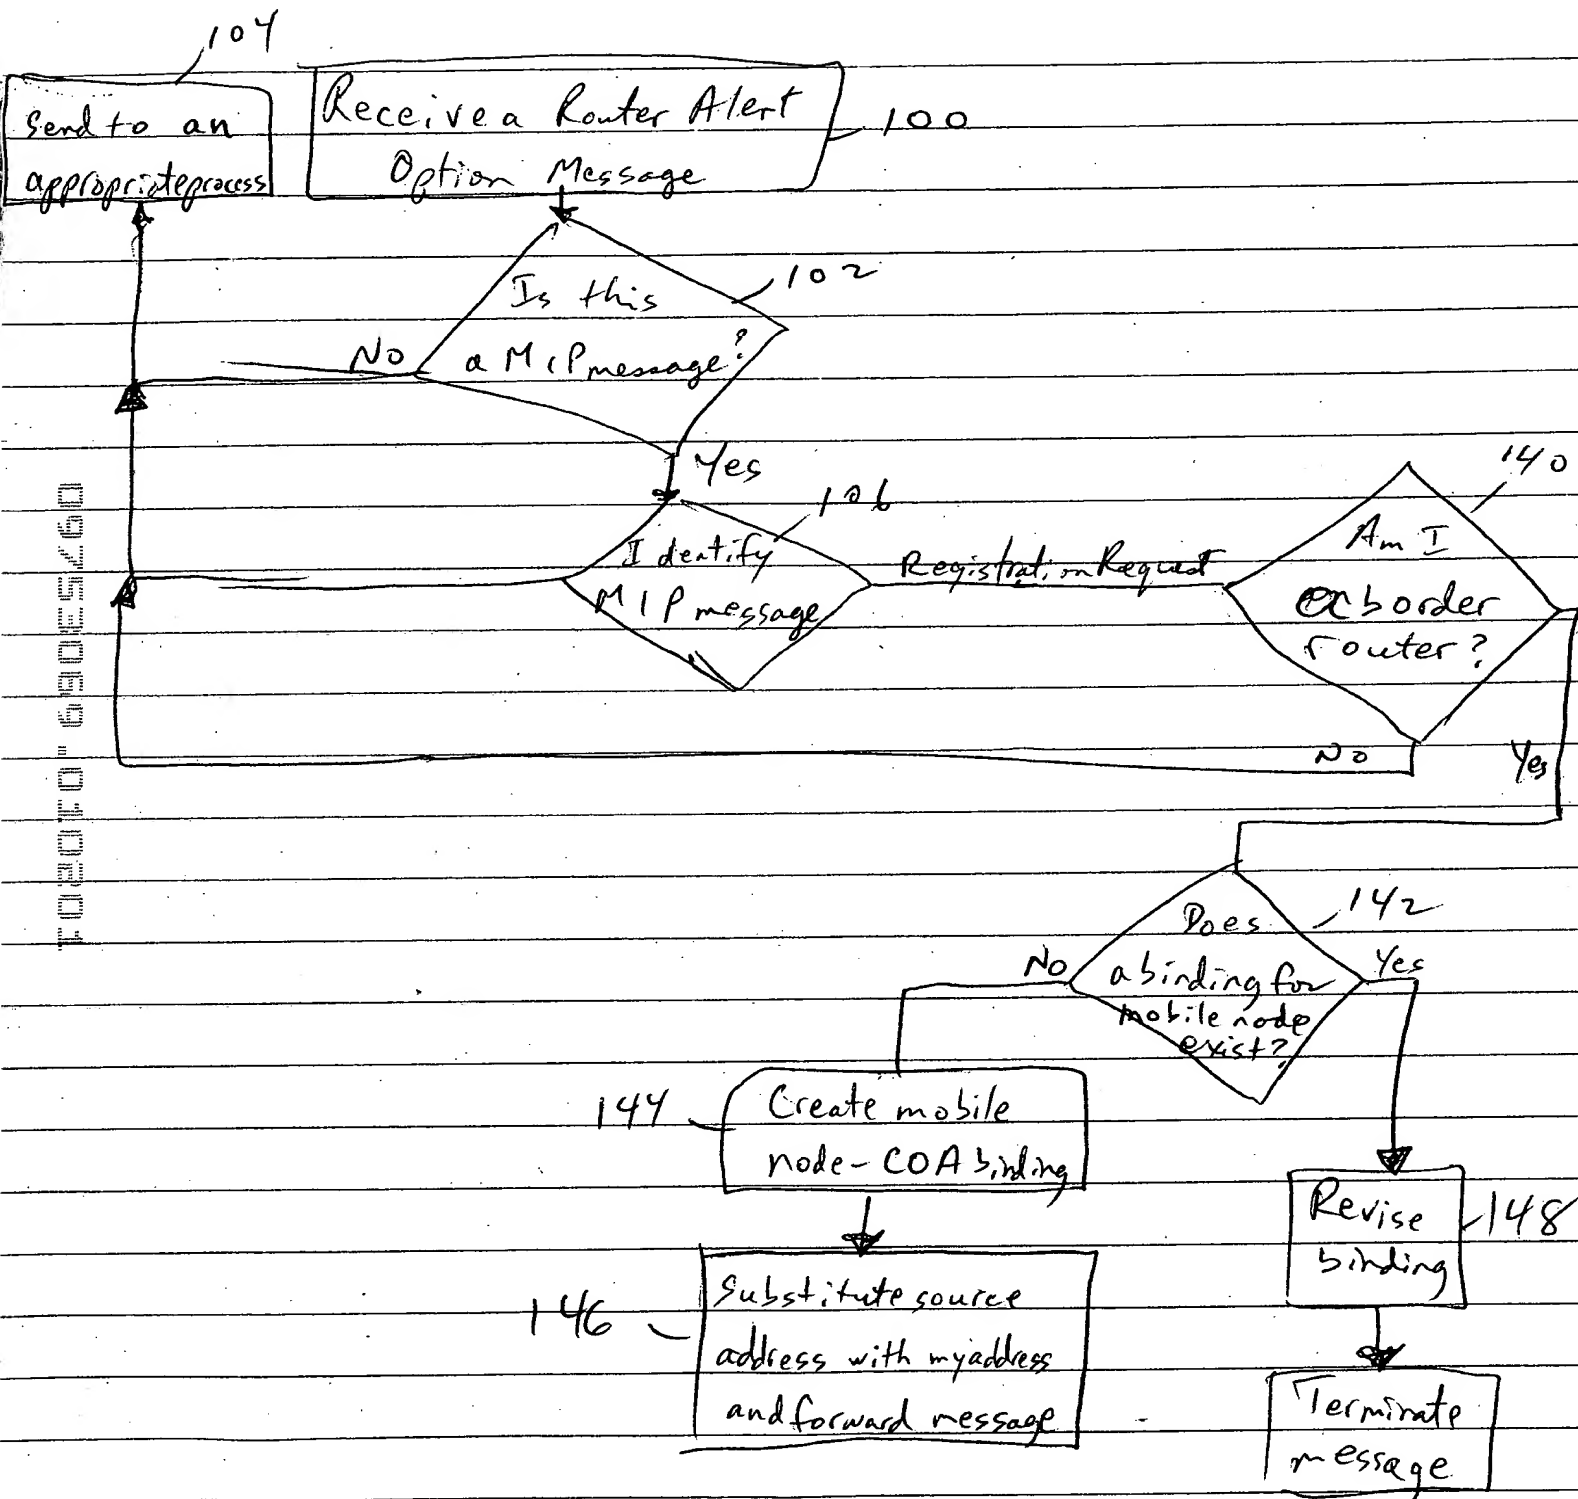 104
Send to an
appropriate process
Receive a Router Alert
Option Message
100
Is this
a MIP message?
102
No
Yes
106
Identify
MIP message
Registration Request
140
Am I
a border
router?
No
Yes
09753069.010201
142
Does
a binding for
mobile node
exist?
No
Yes
144
Create mobile
node - COA binding
Revise
binding
148
146
Substitute source
address with my address
and forward message
Terminate
message